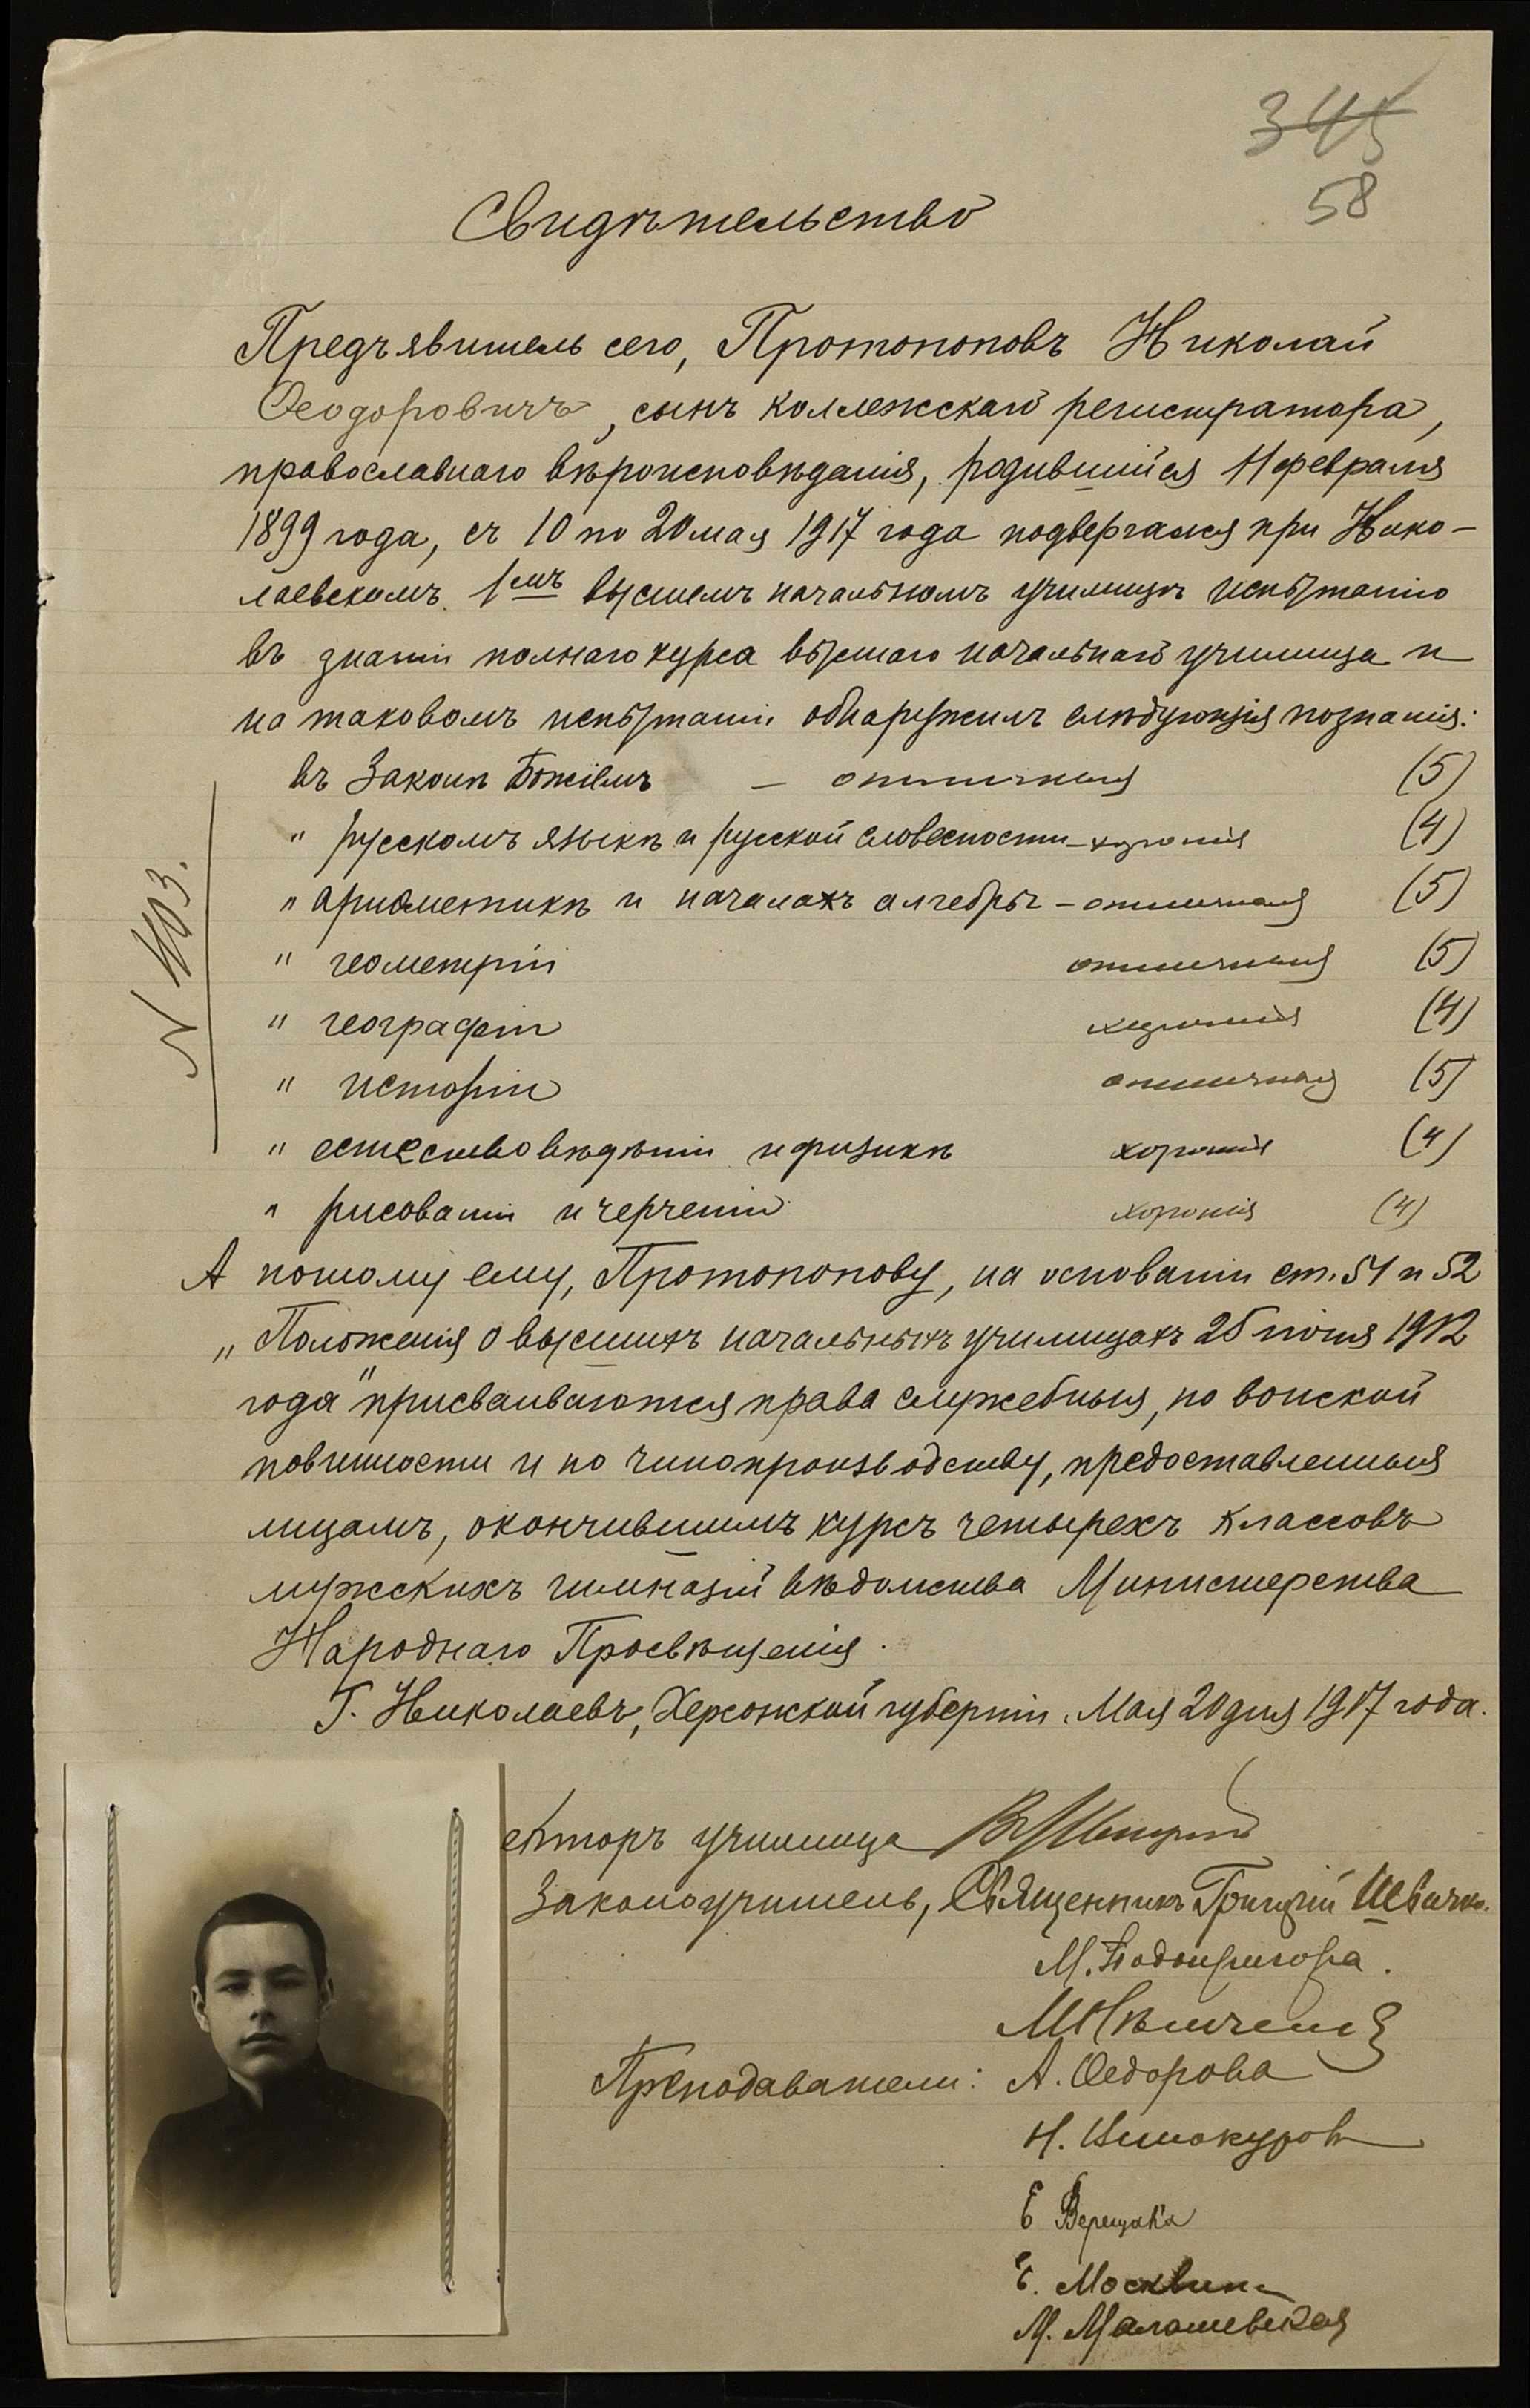 345
58
Свидѣтельство
Предъявитель сего, Протопоповъ Николай
Ѳеодоровичъ, сынъ коллежскаго регистратора,
православнаго вѣроисповѣданія, родившійся 11 февраля
1899 года, съ 10 по 20 мая 1917 года подвергался при Нико-
лаевскомъ 1омъ высшемъ начальномъ училищѣ испытанію
въ знаніи полнаго курса высшаго начальнаго училища и
на таковомъ испытаніи обнаружилъ слѣдующія познанія:
въ Законѣ Божіемъ — отличныя (5)
" русскомъ языкѣ и русской словесности – хорошія (4)
" ариѳметикѣ и началахъ алгебры – отличныя (5)
" геометріи отличныя (5)
" географіи хорошія (4)
" исторіи отличныя (5)
" естествовѣдѣніи и физикѣ хорошія (4)
" рисованіи и черченіи хорошія (4)
N 403.
А потому ему, Протопопову, на основаніи ст. 51 и 52
„Положенія о высшихъ начальныхъ училищахъ 25 іюня 1912
года" присваиваются права служебныя, по воиской
повинности и по чинопроизводству, предоставленныя
лицамъ, окончившимъ курсъ четырехъ классовъ
мужскихъ гимназій вѣдомства Министерства
Народнаго Просвѣщенія.
Г. Николаевъ, Херсонской губерніи. Мая 20 дня 1917 года.
екторъ училища
Законоучитель, Священникъ Григорій Шевченко.
М. Подопригора.
Преподаватели: А. Ѳедорова
Н. Винокуров
Е Верещака
Е. Москвин
М. Малашевская